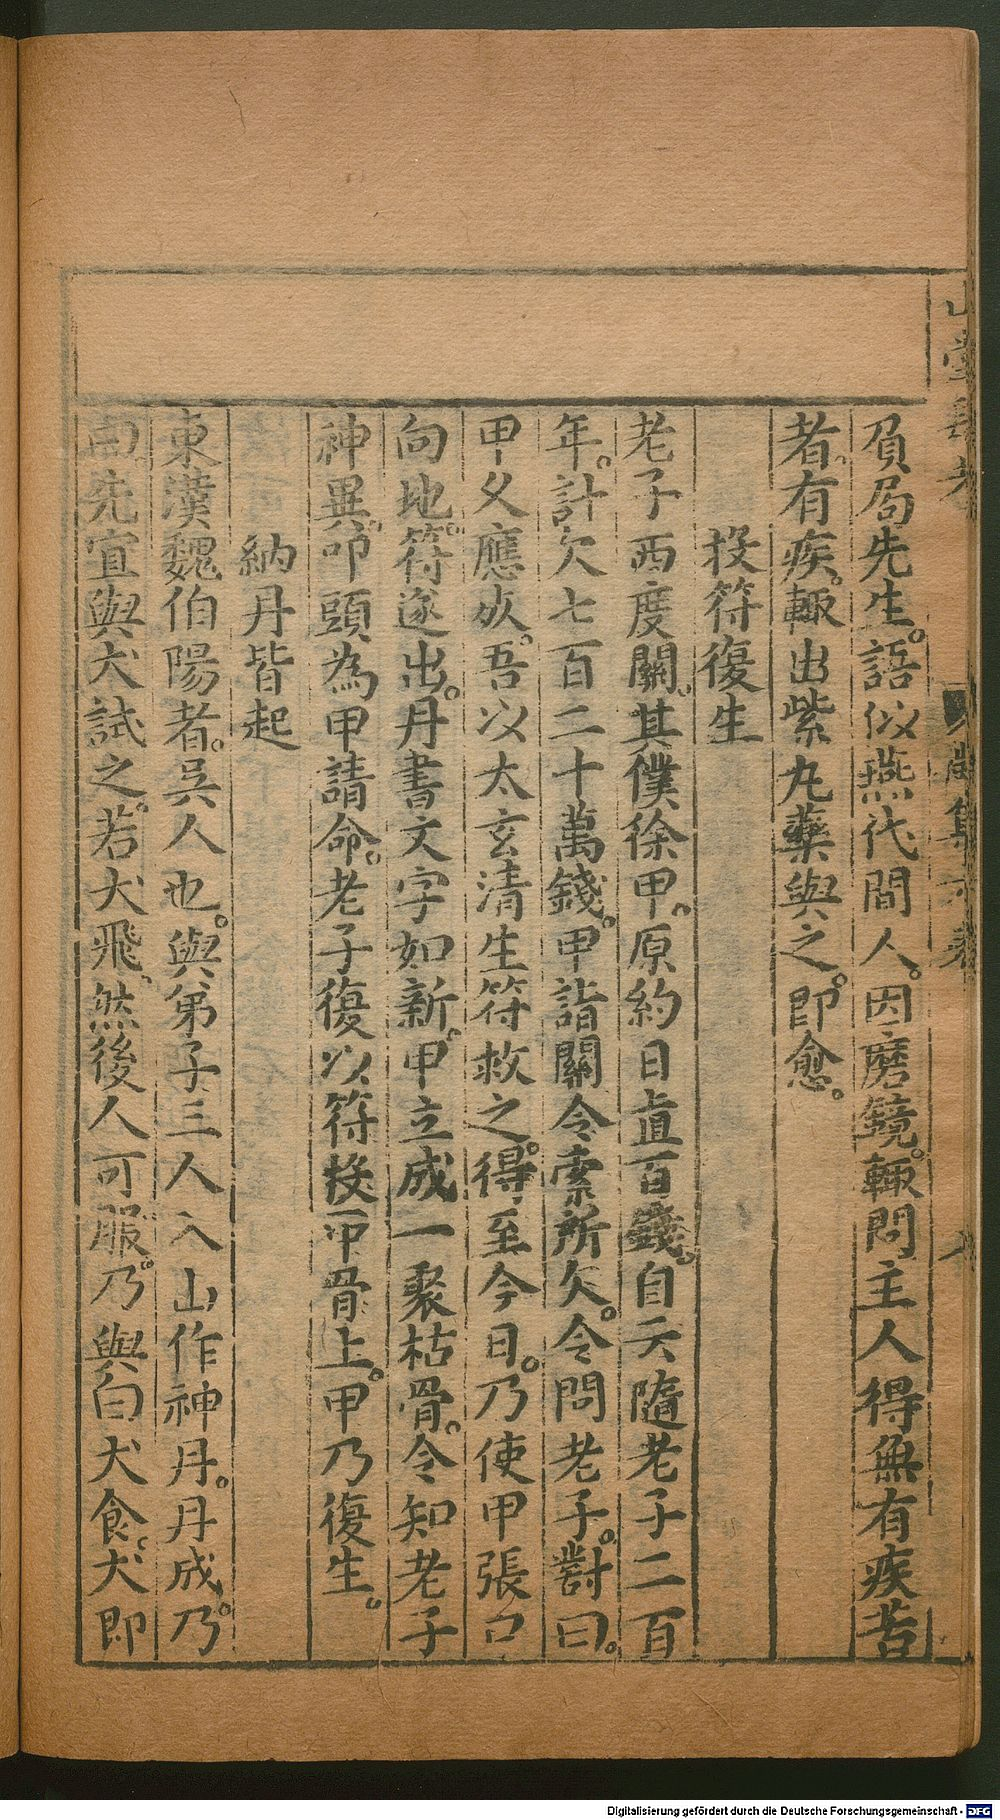 負局先生。語似燕代間人。因磨鏡。輒問主人得無有疾苦
者。有疾。輒出紫丸藥與之。即愈。
投符復生
老子西度關。其僕徐甲。原約日直百錢。自云隨老子二百
年。計欠七百二十萬錢。甲詣關令索所欠。令問老子。對曰。
甲久應死。吾以太玄清生符救之。得至今日。乃使甲張口
向地。符遂出。丹書文字如新。甲立成一聚枯骨。令知老子
神異。叩頭為甲請命。老子復以符投甲骨上。甲乃復生。
納丹皆起
東漢魏伯陽者。吳人也。與弟子三人入山作神丹。丹成。乃
曰。先宜與犬試之。若犬飛。然後人可服。乃與白犬食。犬即
山堂肆考
Digitalisierung gefördert durch die Deutsche Forschungsgemeinschaft - DFG